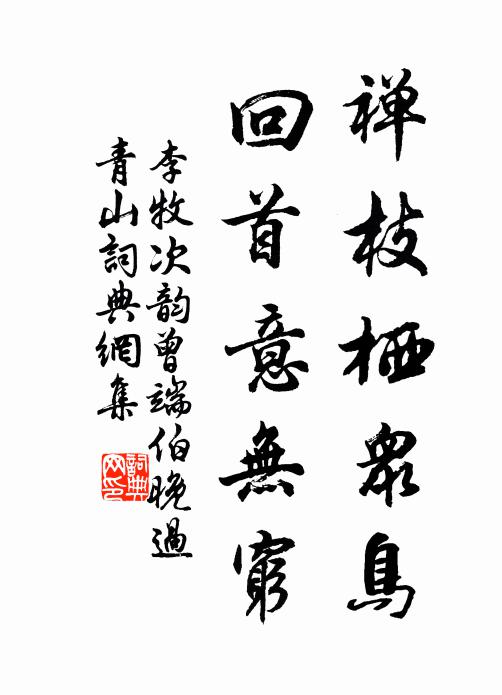 禅枝栖衆鳥
回首意無窮
李牧次韵曾端伯晚過
青山詞典網集
詞典
网印